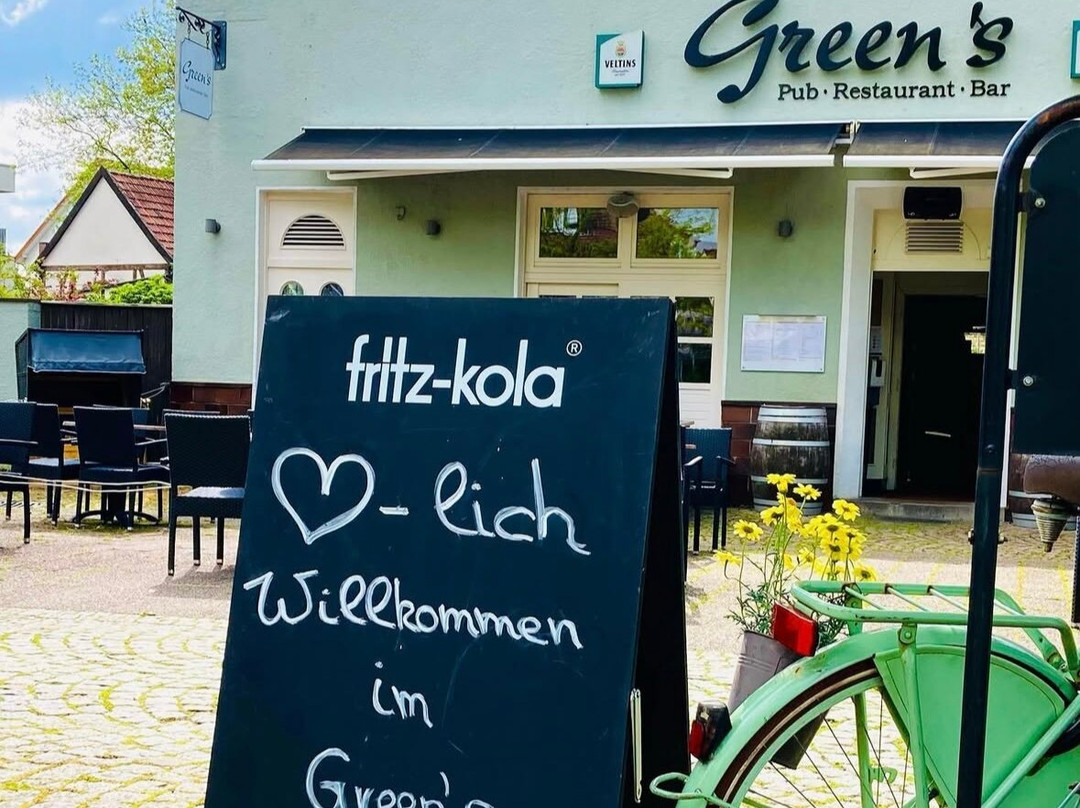 Green's
VELTINS
Green's
Pub · Restaurant · Bar
fritz-kola®
♡-lich
Willkommen
im
Green's